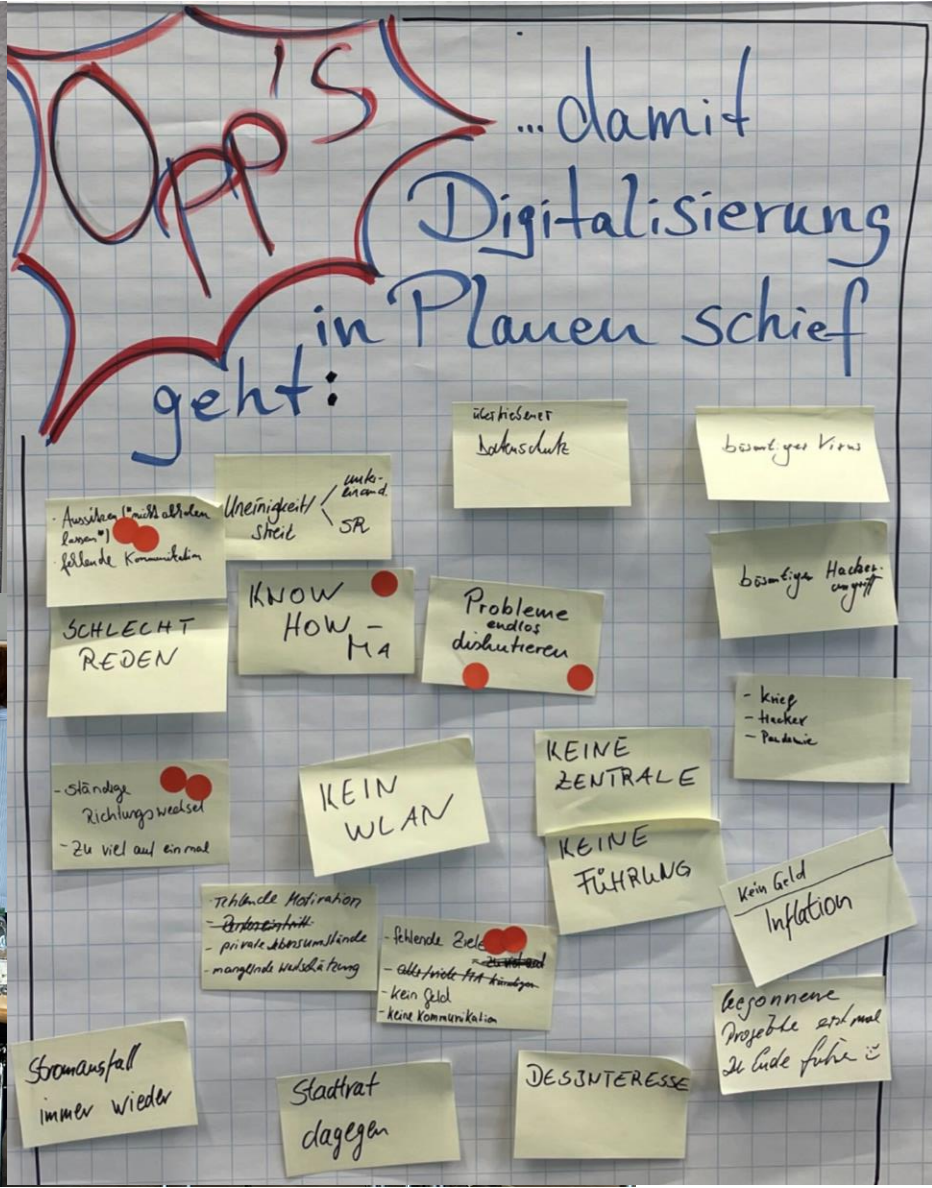 Opp's
... damit
Digitalisierung
in Plauen schief
geht:
übertriebener
Datenschutz
bösartiger Virus
Uneinigkeit/
Streit
unter-
einand.
SR
· Aussitzen ("nicht abholen
lassen")
· fehlende Kommunikation
bösartiger Hacker-
angriff
KNOW
HOW -
MA
Probleme
endlos
diskutieren
SCHLECHT
REDEN
- Krieg
- Hacker
- Pandemie
KEINE
ZENTRALE
- ständige
Richtungswechsel
- Zu viel auf einmal
KEIN
WLAN
KEINE
FÜHRUNG
Kein Geld
Inflation
- fehlende Motivation
- private Lebensumstände
- mangelnde Wertschätzung
- fehlende Ziele
- alle/viele MA kündigen
- kein Geld
- keine Kommunikation
begonnene
Projekte erst mal
zu Ende führen
Stromausfall
immer wieder
Stadtrat
dagegen
DESINTERESSE